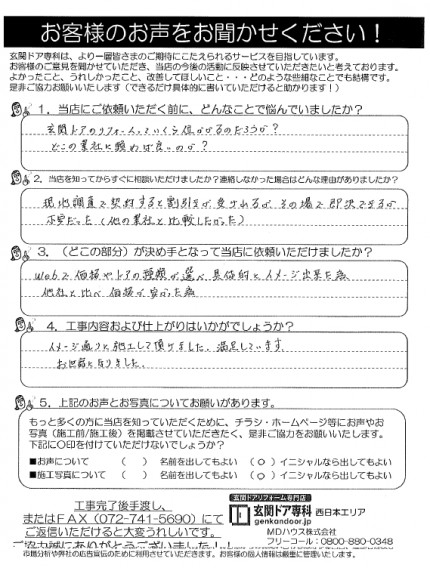 お客様のお声をお聞かせください！
玄関ドア専科は、より一層皆さまのご期待にこたえられるサービスを目指しています。
お客様のご意見を聞かせていただき、当店の今後の活動に反映させていただきたいと考えております。
よかったこと、うれしかったこと、改善してほしいこと・・・どのような些細なことでも結構です。
是非ご協力お願いいたします（できるだけ具体的に書いていただけると助かります！）
１．当店にご依頼いただく前に、どんなことで悩んでいましたか？
玄関ドアのリフォームっていくら位かかるのだろうか？
どこの業社に頼めば良いのか？
２．当店を知ってからすぐに相談いただけましたか？連絡しなかった場合はどんな理由がありましたか？
現地調査で契約すると割引きが受けられるが その場で即決できるか
不安だった（他の業社と比較したかった）
３．（どこの部分）が決め手となって当店に依頼いただけましたか？
Webで価格やドアの種類が選べ 具体的にイメージ出来た為
他社と比べ価格が安かった為
４．工事内容および仕上がりはいかがでしょうか？
イメージ通りに施工して頂けました、満足しています。
お世話になりました。
５．上記のお声とお写真についてお願いがあります。
もっと多くの方に当店を知っていただくために、チラシ・ホームページ等にお声やお
写真（施工前/施工後）を掲載させていただきたく、是非ご協力をお願いいたします。
下記に○印を付けていただけないでしょうか？
■お声について （　） 名前を出してもよい （○）イニシャルなら出してもよい
■施工写真について （　） 名前を出してもよい （○）イニシャルなら出してもよい
工事完了後手渡し、
またはＦＡＸ（072-741-5690）にて
ご返信いただけると大変うれしいです。
ご協力誠にありがとうございました！！
玄関ドアリフォーム専門店
玄関ドア専科 西日本エリア
genkandoor.jp
ＭＤハウス株式会社
フリーコール：0800-880-0348
市場分析や弊社の広告宣伝のために利用させていただきます。お客様の個人情報は厳重に管理いたします。